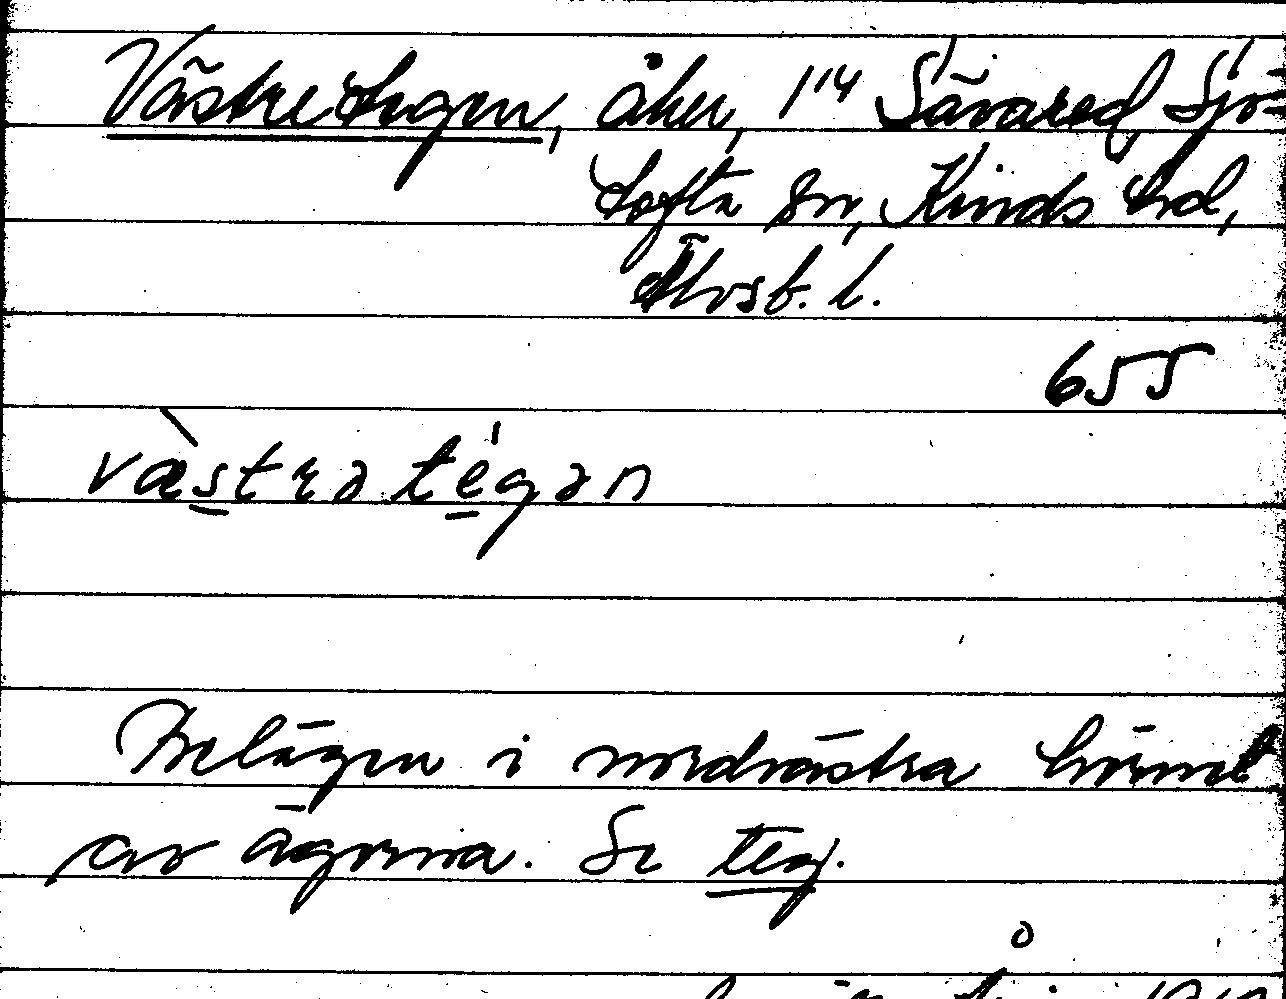 Västre tegen, åker, 1/4 Sävared, Sjö-
tofta sn, Kinds hd,
Älvsb. l.
655
væstrə tegən
Belägen i nordvästra hörnet
av ägorna. Se teg.